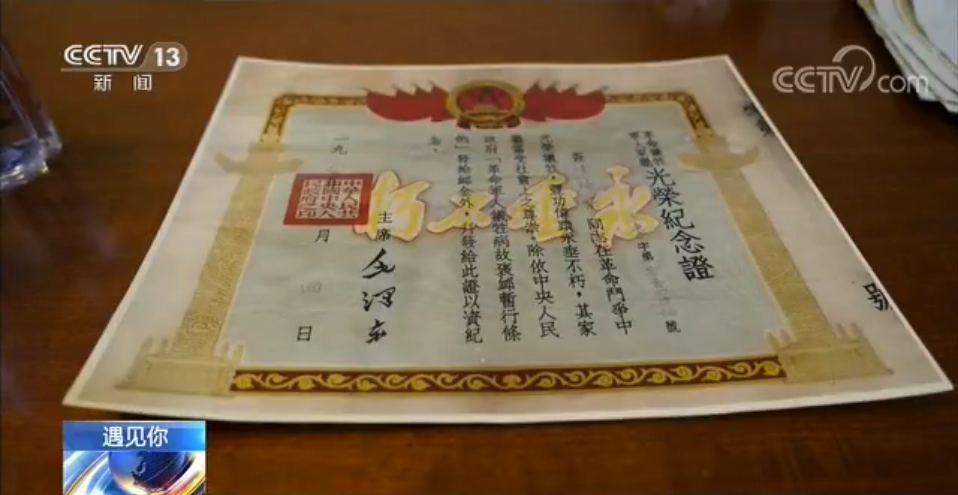 CCTV 13
新闻
CCTV.com
革命犧牲
軍人家屬
光榮紀念證
字第 號
查 同志在革命鬥爭中
光榮犧牲,豐功偉績永垂不朽,其家
屬當受社會上之尊崇。除依中央人民
政府「革命軍人犧牲病故褒卹暫行條
例」發給卹金外,并發給此證以資紀
念。
永垂不朽
主席 毛澤東
一九 月 四日
中華人民共
和國中央人
民政府之印
號
遇见你